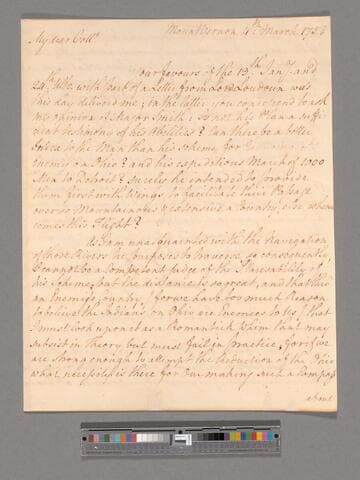 Mount Vernon 4th March 1758
My dear Collo
Your favours of the 13th Jany and
24th Ulto with part of a Letter from Lord Loudoun was
this day deliverd me; in the latter you condescend to ask
my opinion of Major Smith: is not his Plan a suffi-
cient testimony of his Abilities? Can there be a better
Index to the Man than his Scheme for
enemy on Ohio? and his expeditious March of 1000
Men to Detroit? Surely he intended to provide
them first with Wings to facilitate their Passage
over so Mountainous & extensive a Country, else whence
comes this Flight?
I am unacquainted with the Navigation
of those Rivers he proposes to traverse &ca consequently,
cannot be a competent judge of the Practicability of
his Scheme, but the distance is so great, and that thro
an Enemies Country, (for we have too much Reason
to believe the Indians on Ohio are Enemies to Us) that
I must look upon it as a Romantick Whim that may
subsist in theory but must fail in practice, for if we
are strong enough to attempt the Reduction of the Ohio
what necessity is there for Our making such a Compass
about